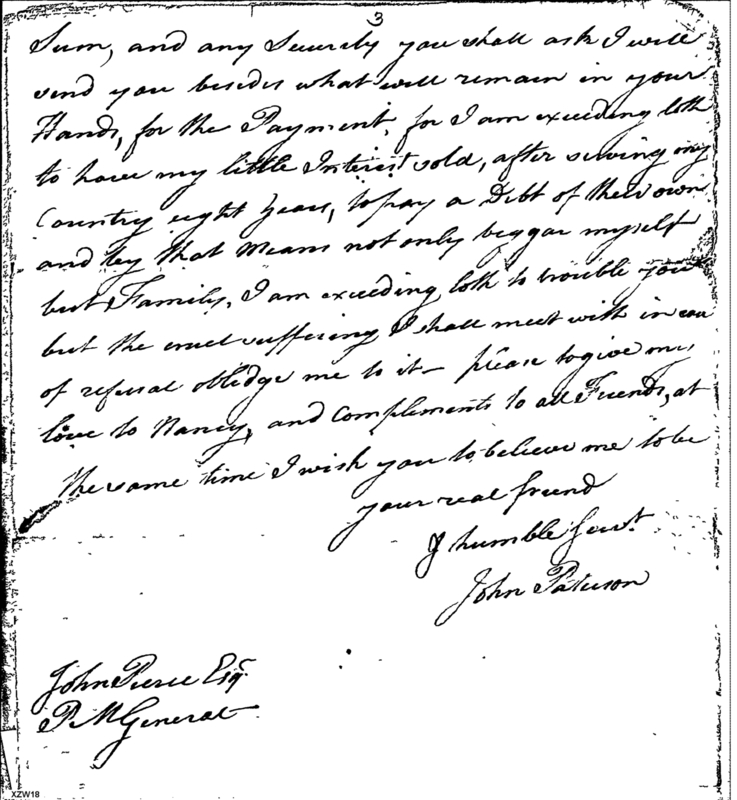 3
Sum, and any Security you shall ask I will
send you besides what will remain in your
Hands, for the Payment, for I am exceeding loth
to have my little Interest sold, after serving my
Country eight Years, to pay a Debt of their own
and by that Means not only beggar myself
but Family, I am exceeding loth to trouble you
but the cruel suffering I shall meet with in case
of refusal oblidge me to it – please to give my
love to Nancy, and Complements to all Friends, at
the same time I wish you to believe me to be
your real friend
& humble Servt.
John Paterson
John Pierce Esqr.
P. M General
XZW18